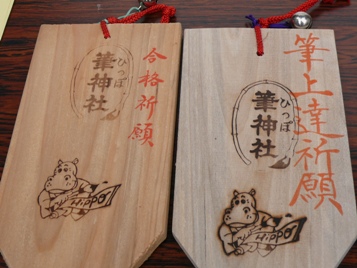 合格祈願
ひっぽ
筆神社
HIPPO
筆上達祈願
ひっぽ
筆神社
HIPPO